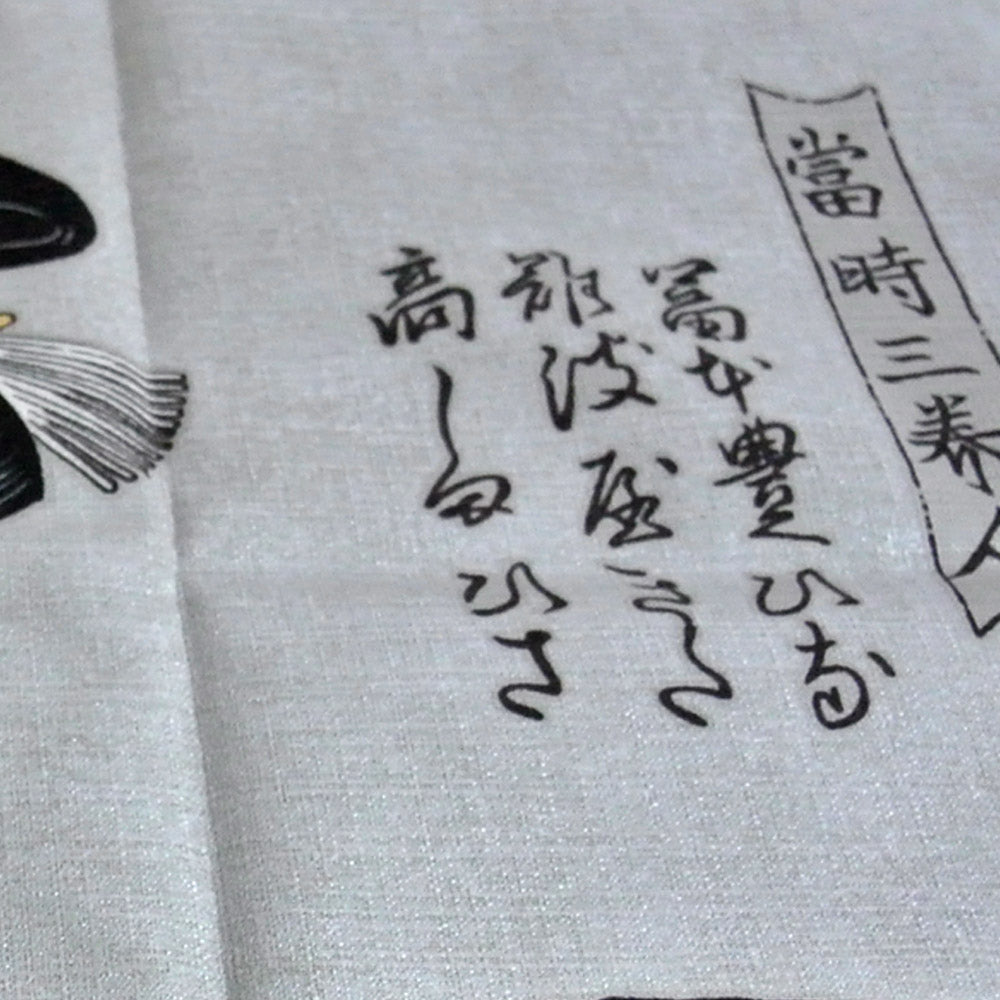 當時三美人
富本豊ひな
難波屋きた
高しまひさ